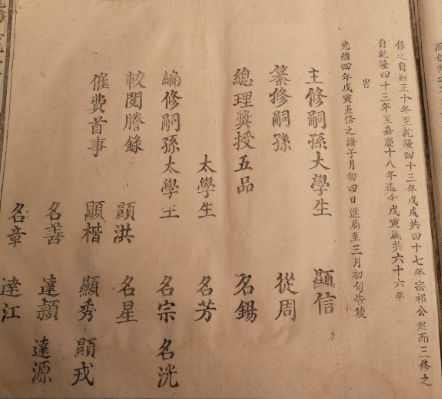 修之自雍正十年至乾隆四十三年戊戌共四十七年宗祁公起而三修之
自乾隆四十三年至嘉慶十八年迄今戊寅歲共六十六年
旹
光緒四年戊寅五修之譜于月初四日進局至三月初旬告竣
主修嗣孫大學生 顯信
纂修嗣孫 從周
總理奬授五品 名錫
太學生 名芳
編修嗣孫太學生 名宗 名洸
較閱謄錄 顯洪 名星
催費首事 顯楷 顯秀 顯戎
名善 達顯 達源
名章 達江